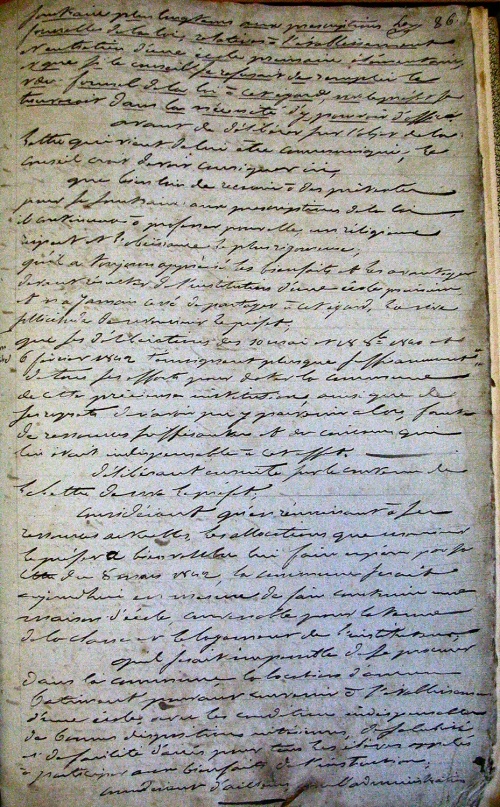 soustraire plus longtemps aux prescriptions 86
formelles de la loi, relative à l'établissement
et entretien d'une école primaire élémentaire
et que si le conseil se refusait de remplir le
vœu formel de la loi à cet égard, le préfet se
trouverait dans la nécessité d'y pourvoir d'office
avant de délibérer sur l'objet de la
lettre qui vient de lui être communiquée, le
conseil croit devoir consigner ici,
que bien loin de recourir à des prétextes
pour se soustraire aux prescriptions de la loi,
il continuera à professer pour elle, un religieux
respect et l'obéissance la plus rigoureuse,
qu'il a toujours apprécié les bienfaits et les avantages
devant résulter de l'institution d'une école primaire
et n'a jamais cessé de partager à cet égard, la vive
sollicitude de monsieur le préfet;
que ses délibérations des 10 mai et 1840 et
6 février 1842 témoignent presque surabondamment
de tous ses efforts pour doter la commune
de cette précieuse institution, ainsi que de
ses regrets de n'avoir pu y parvenir alors, faute
de ressources suffisantes et du concours qui
lui était indispensable à cet effet.
délibérant ensuite sur le contenu de
la lettre de le préfet;
considérant qu'en réunissant à ses
ressources actuelles, les allocations que monsieur
le préfet a bien voulu lui faire espérer par sa
lettre du 8 mars 1842, la commune serait
aujourd'hui en mesure de faire construire une
maison d'école, convenable pour la tenue
de la classe et le logement de l'instituteur,
qu'il serait impossible de se procurer
dans la commune la location d'aucun
batiment pouvant convenir à l'établissement
d'une école avec les conditions indispensables
de bonnes dispositions intérieures, de salubrité
et de facilité d'accès pour tous les élèves appelés
à participer aux bienfaits de l'instruction;
considérant d'ailleurs l'administration